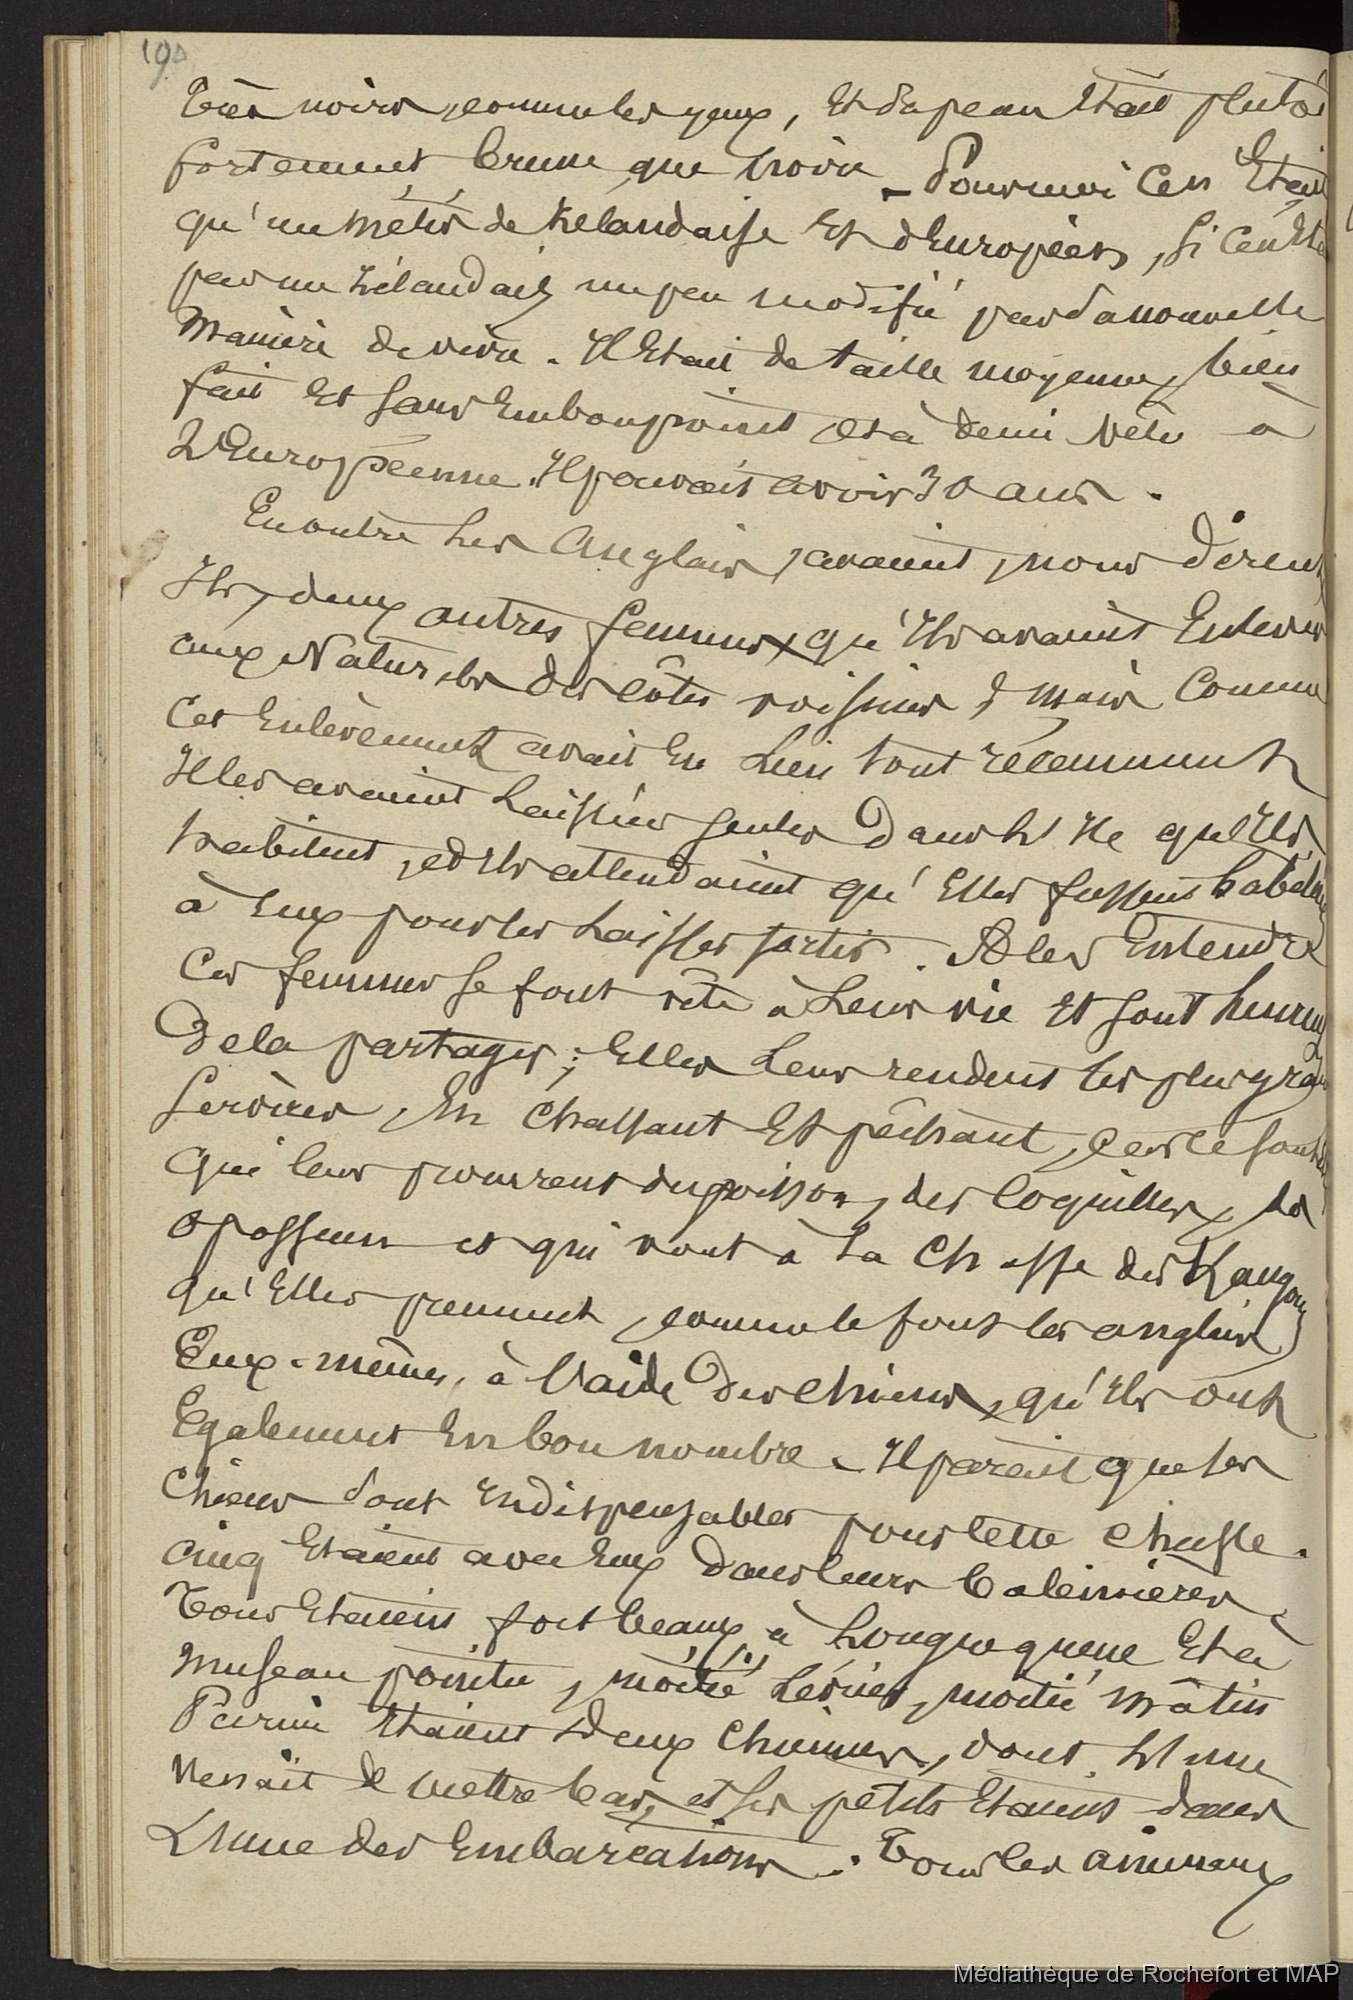 190
très noirs, comme les yeux, et sa peau était plutôt
fortement brune que noire. Pour moi c'en était
qu'un métis de Zélandaise et d'Européen, si c'en
pas un Zélandais un peu modifié par sa nouvelle
manière de vivre. Il était de taille moyenne, bien
fait et sans embonpoint et à demi vêtu à
L'Européenne. Il pouvait avoir 30 ans.
En outre les Anglais, avaient, nous dirent
Ils, deux autres femmes, qu'Ils avaient Enlevées
aux Naturels des côtes voisines, mais comme
cet Enlèvement avait Eu Lieu tout récemment
Ils les avaient Laissées seules dans l'Ile qu'Ils
habitent, et Ils attendaient qu'Elles fussent habituées
à Eux pour les Laisser sortir. A les Entendre
ces femmes se font vite à Leur vie Et sont heureuses
de la partager; Elles Leur rendent les plus grands
services, En chassant Et pêchant, car ce sont
qui leur procurent du poisson, des coquilles, des
opossum et qui vont à La chasse des Kangourous
qu'Elles prennent, comme le font les anglais
Eux-mêmes, à l'aide des chiens, qu'Ils ont
Egalement En bon nombre. Il paraît que les
chiens sont Indispensables pour cette chasse.
cinq Etaient avec Eux dans leurs baleinières.
Tous Etaient fort beaux, à Longue queue Et à
museau pointu, moitié Lévrier, moitié mâtin
Parmi Etaient deux chiennes, dont l'une
venait de mettre bas, et les petits Etaient dans
L'une des Embarcations. Tous les animaux
Médiathèque de Rochefort et MAP